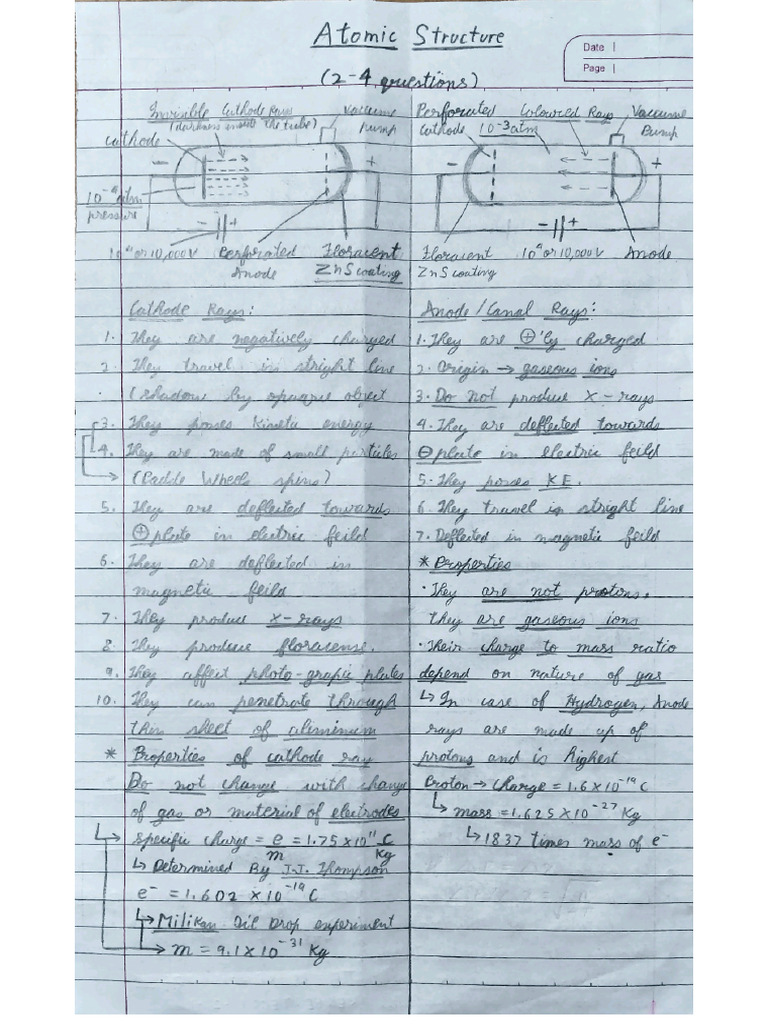 Atomic Structure
Date
Page
(2-4 questions)
Invisible Cathode Rays
(darkness inside the tube)
Vaccume
Pump
Cathode
-
+
10⁻⁴ atm
pressure
- +
10⁴ or 10,000V
Perforated
Anode
Floracent
ZnS coating
Cathode Rays:
1. They are negatively charged
2. They travel in stright line
(shadow by opaque object
3. They posses Kinetic energy
4. They are made of small particles
(Paddle Wheels spins)
5. They are deflected towards
⊕ plate in electric feild
6. They are deflected in
magnetic feild
7. They produce x-rays
8. They produce floracense.
9. They affect photo-grafic plates
10. They can penetrate through
thin sheet of aliminium
* Properties of cathode ray
Do not change with change
of gas or material of electrodes
↳ Specific charge = e/m = 1.75 × 10¹¹ C/Kg
↳ Determined By J.J. Thompson
e⁻ = 1.602 × 10⁻¹⁹ C
↳ Milikan Oil Drop experiment
→ m = 9.1 × 10⁻³¹ Kg
Perforated
Cathode
10⁻³ atm
Coloured Rays
Vaccume
Pump
-
+
- +
Floracent
ZnS coating
10⁴ or 10,000V
Anode
Anode / Canal Rays:
1. They are ⊕'ly charged
2. Origin → gaseous ions
3. Do not produce x-rays
4. They are deflected towards
⊖ plate in electric feild
5. They posses KE.
6. They travel in stright line
7. Deflected in magnetic feild
* Properties
· They are not protons,
they are gaseous ions
· Their charge to mass ratio
depend on nature of gas
↳ In case of Hydrogen, Anode
rays are made up of
protons and is highest
Proton → Charge = 1.6 × 10⁻¹⁹ C
↳ mass = 1.625 × 10⁻²⁷ Kg
↳ 1837 times mass of e⁻